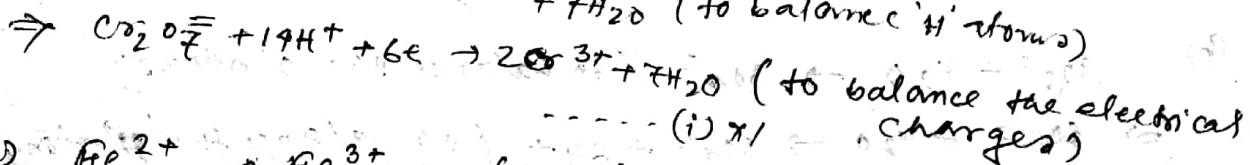 + 7H2O (to balance 'H' atoms)
⇒ Cr2O7= + 14H+ + 6e → 2Cr3+ + 7H2O (to balance the electrical charges)
----- (i) x1
Fe2+ Fe3+